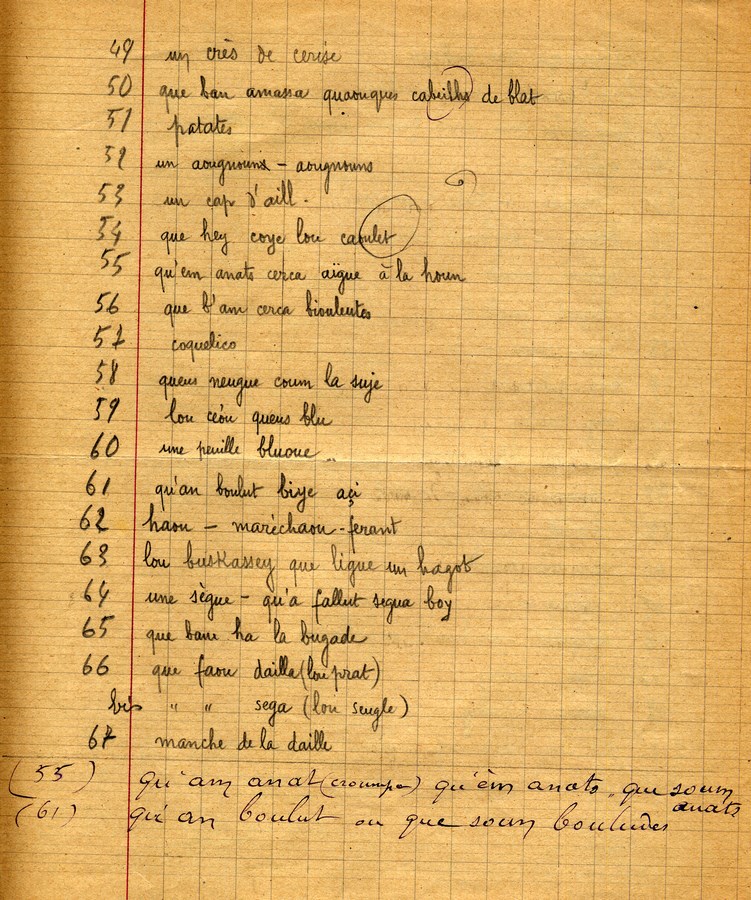 49 un crès de cerise
50 que ban amassa quaouques cabeilhs de blat
51 patates
52 un aougnoun - aougnouns
53 un cap d'aill.
54 que hey coye lou caoulet
55 qu'em anats cerca aïgue à la houn
56 que b'am cerca biouleutes
57 coquelico
58 queus neugue coum la suje
59 lou céou queus blu
60 une peuille bluoue
61 qu'an boulut biye açi
62 haou - maréchaou-ferant
63 lou buskassey que ligue un hagot
64 une sègue - qu'a fallut segua boy
65 que bam ha la bugade
66 que faou dailla (lou prat)
bis " " sega (lou seugle)
67 manche de la daille
(55) qu'am anat (croumpa) qu'èm anats, que soum anats
(61) qu'an boulut ou que soun bouludes